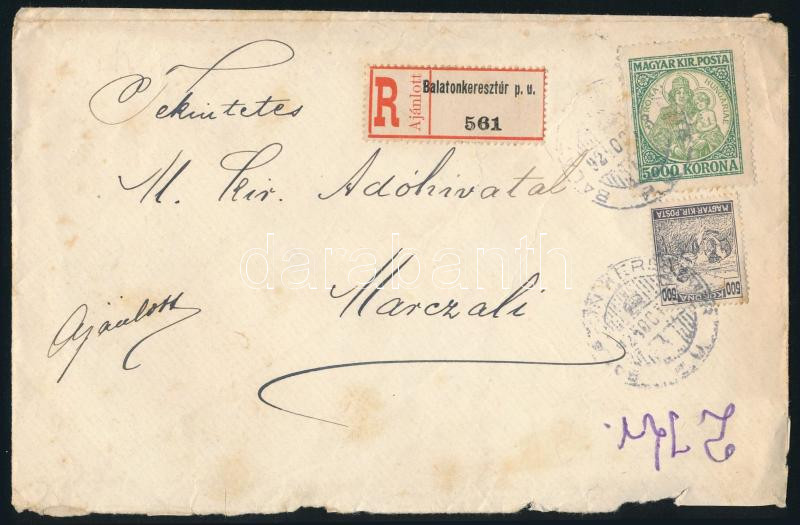 MAGYAR KIR. POSTA
PATRONA HUNGARIAE
5000 KORONA
R
Ajánlott
Balatonkeresztúr p. u.
561
Tekintetes
M. Kir. Adóhivatal
Marczali
Ajánlott
MAGYAR KIR. POSTA
500 KORONA 500
darabanth